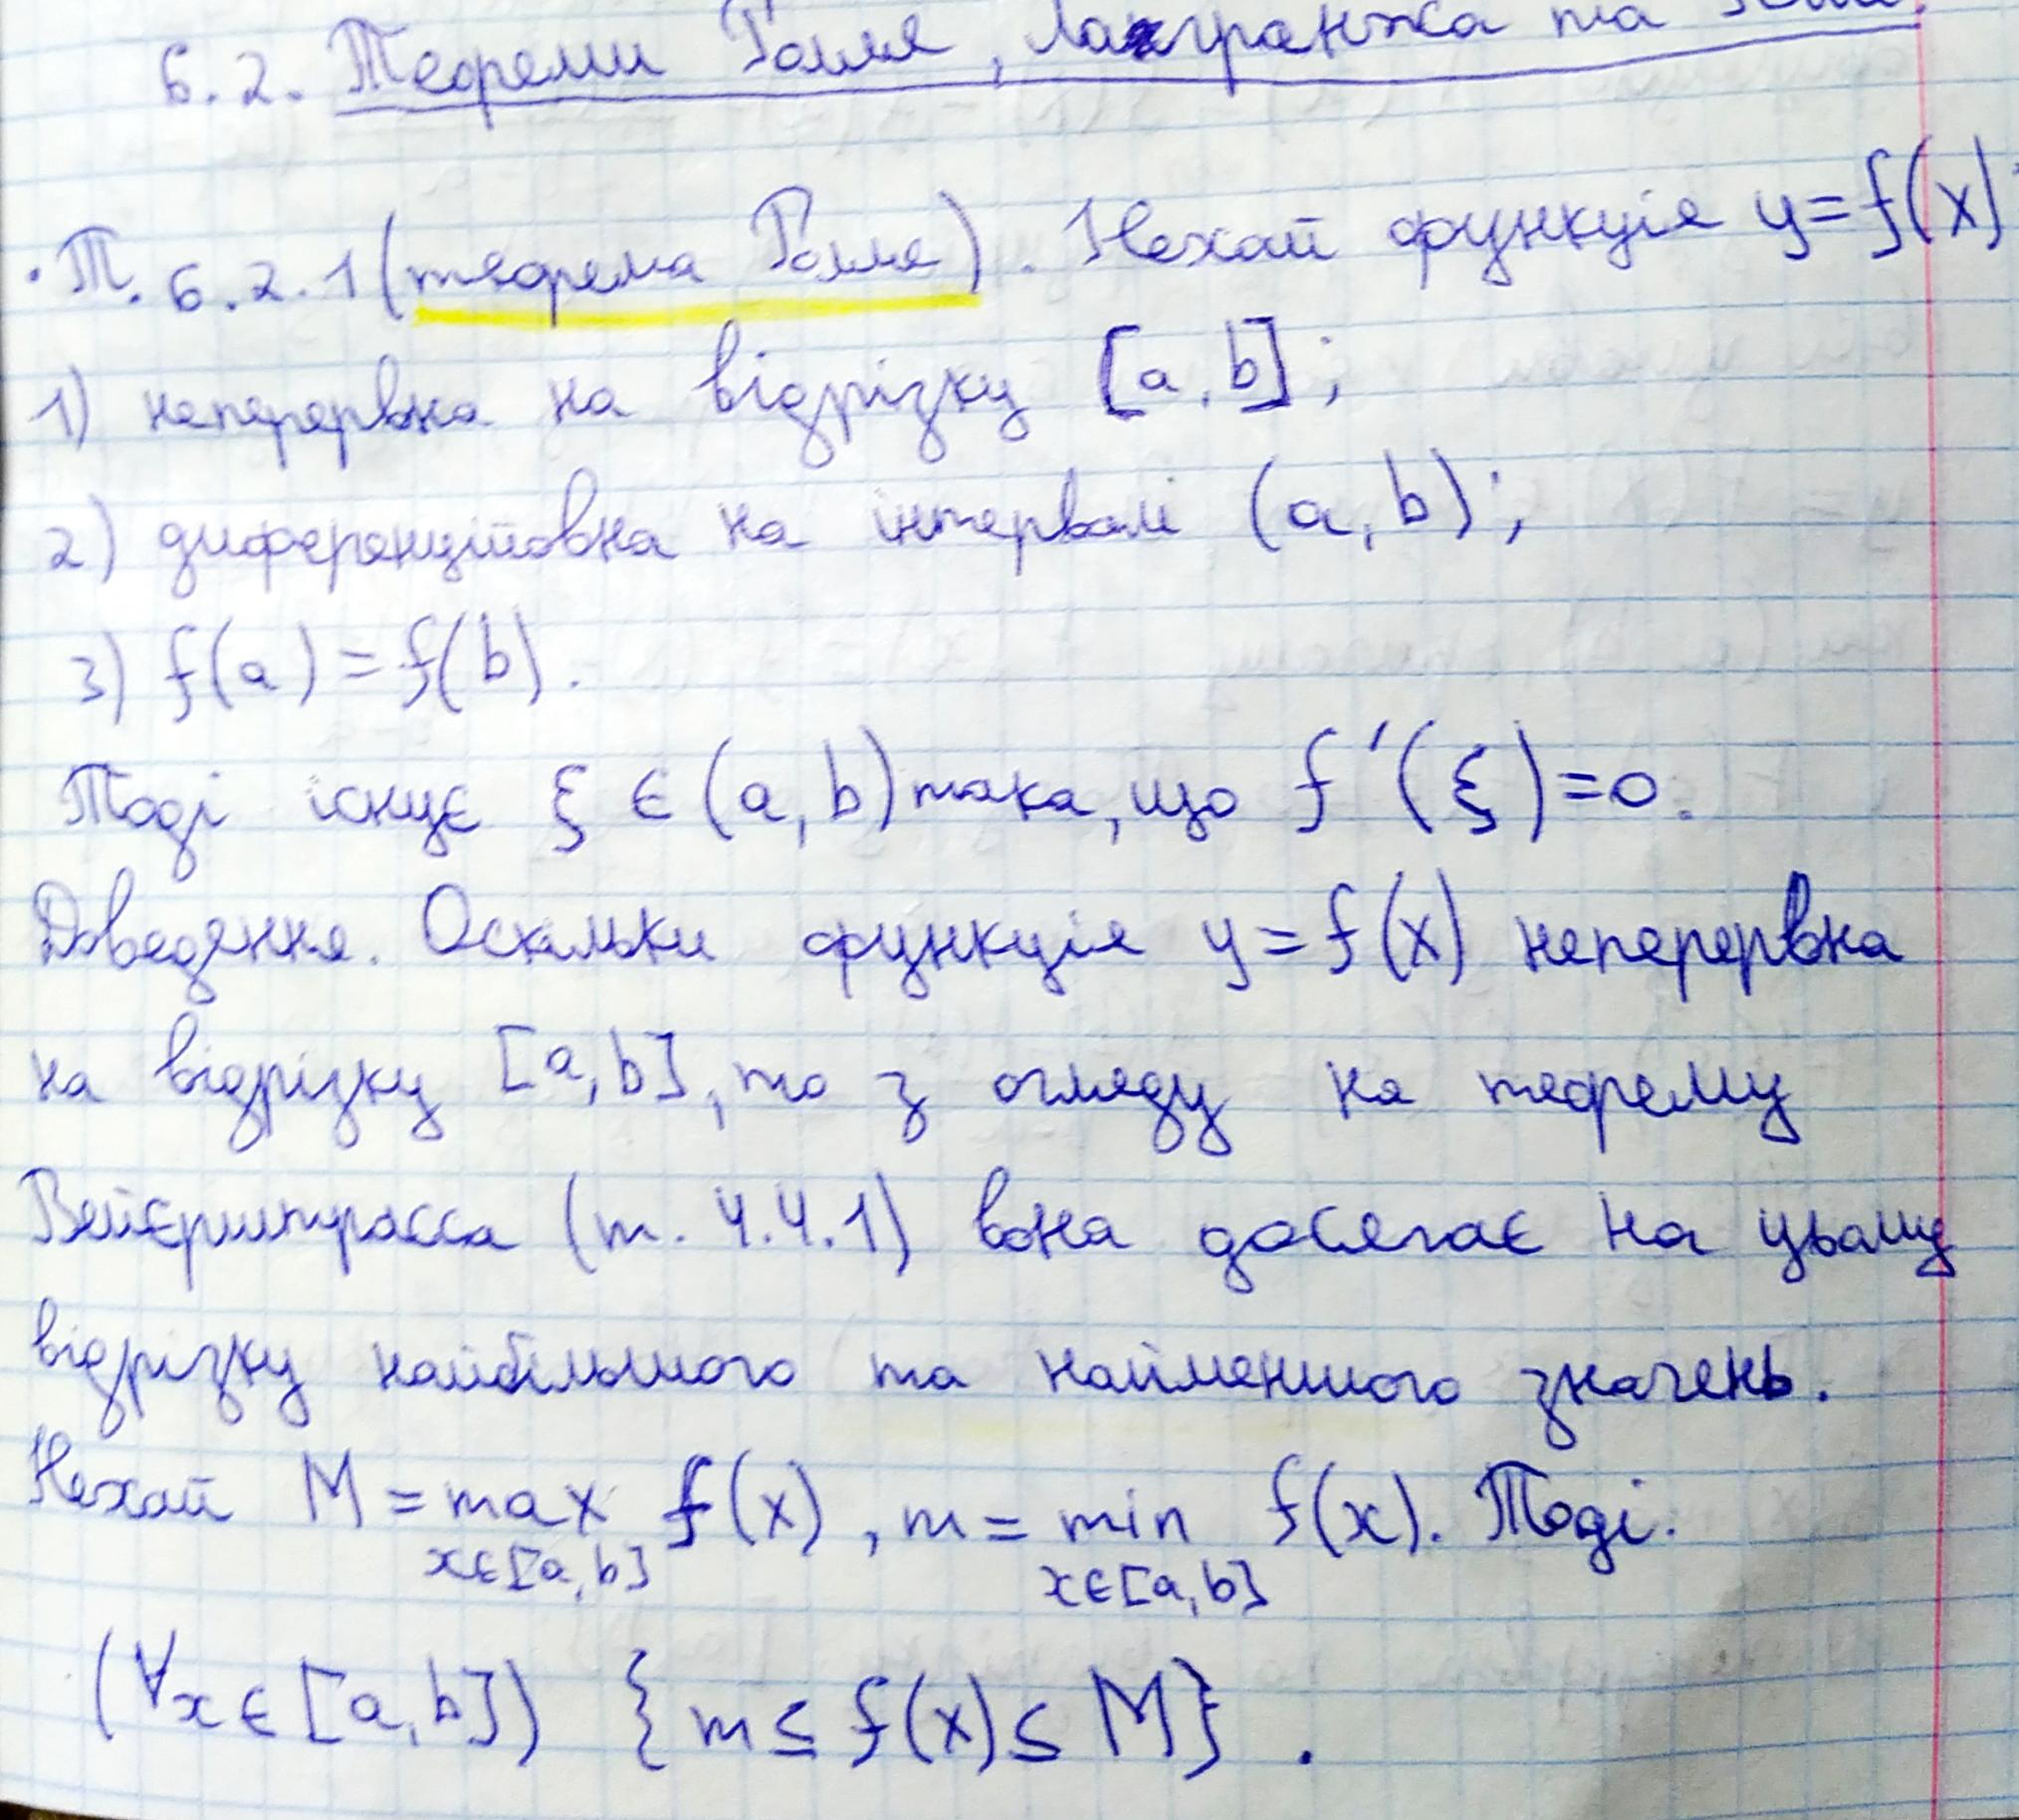 6.2. Теореми Ролля, Лагранжа та
·Т. 6.2.1 (теорема Ролля). Нехай функція y=f(x)
1) неперервна на відрізку [a, b];
2) диференційовна на інтервалі (a, b);
3) f(a)=f(b).
Тоді існує ξ ∈ (a, b) така, що f'(ξ)=0.
Доведення. Оскільки функція y=f(x) неперервна
на відрізку [a, b], то з огляду на теорему
Вейєрштрасса (т. 4.4.1) вона досягає на цьому
відрізку найбільшого та найменшого значень.
Нехай M = max f(x), m = min f(x). Тоді.
x∈[a, b] x∈[a, b]
(∀x∈[a, b]) {m≤f(x)≤M}.